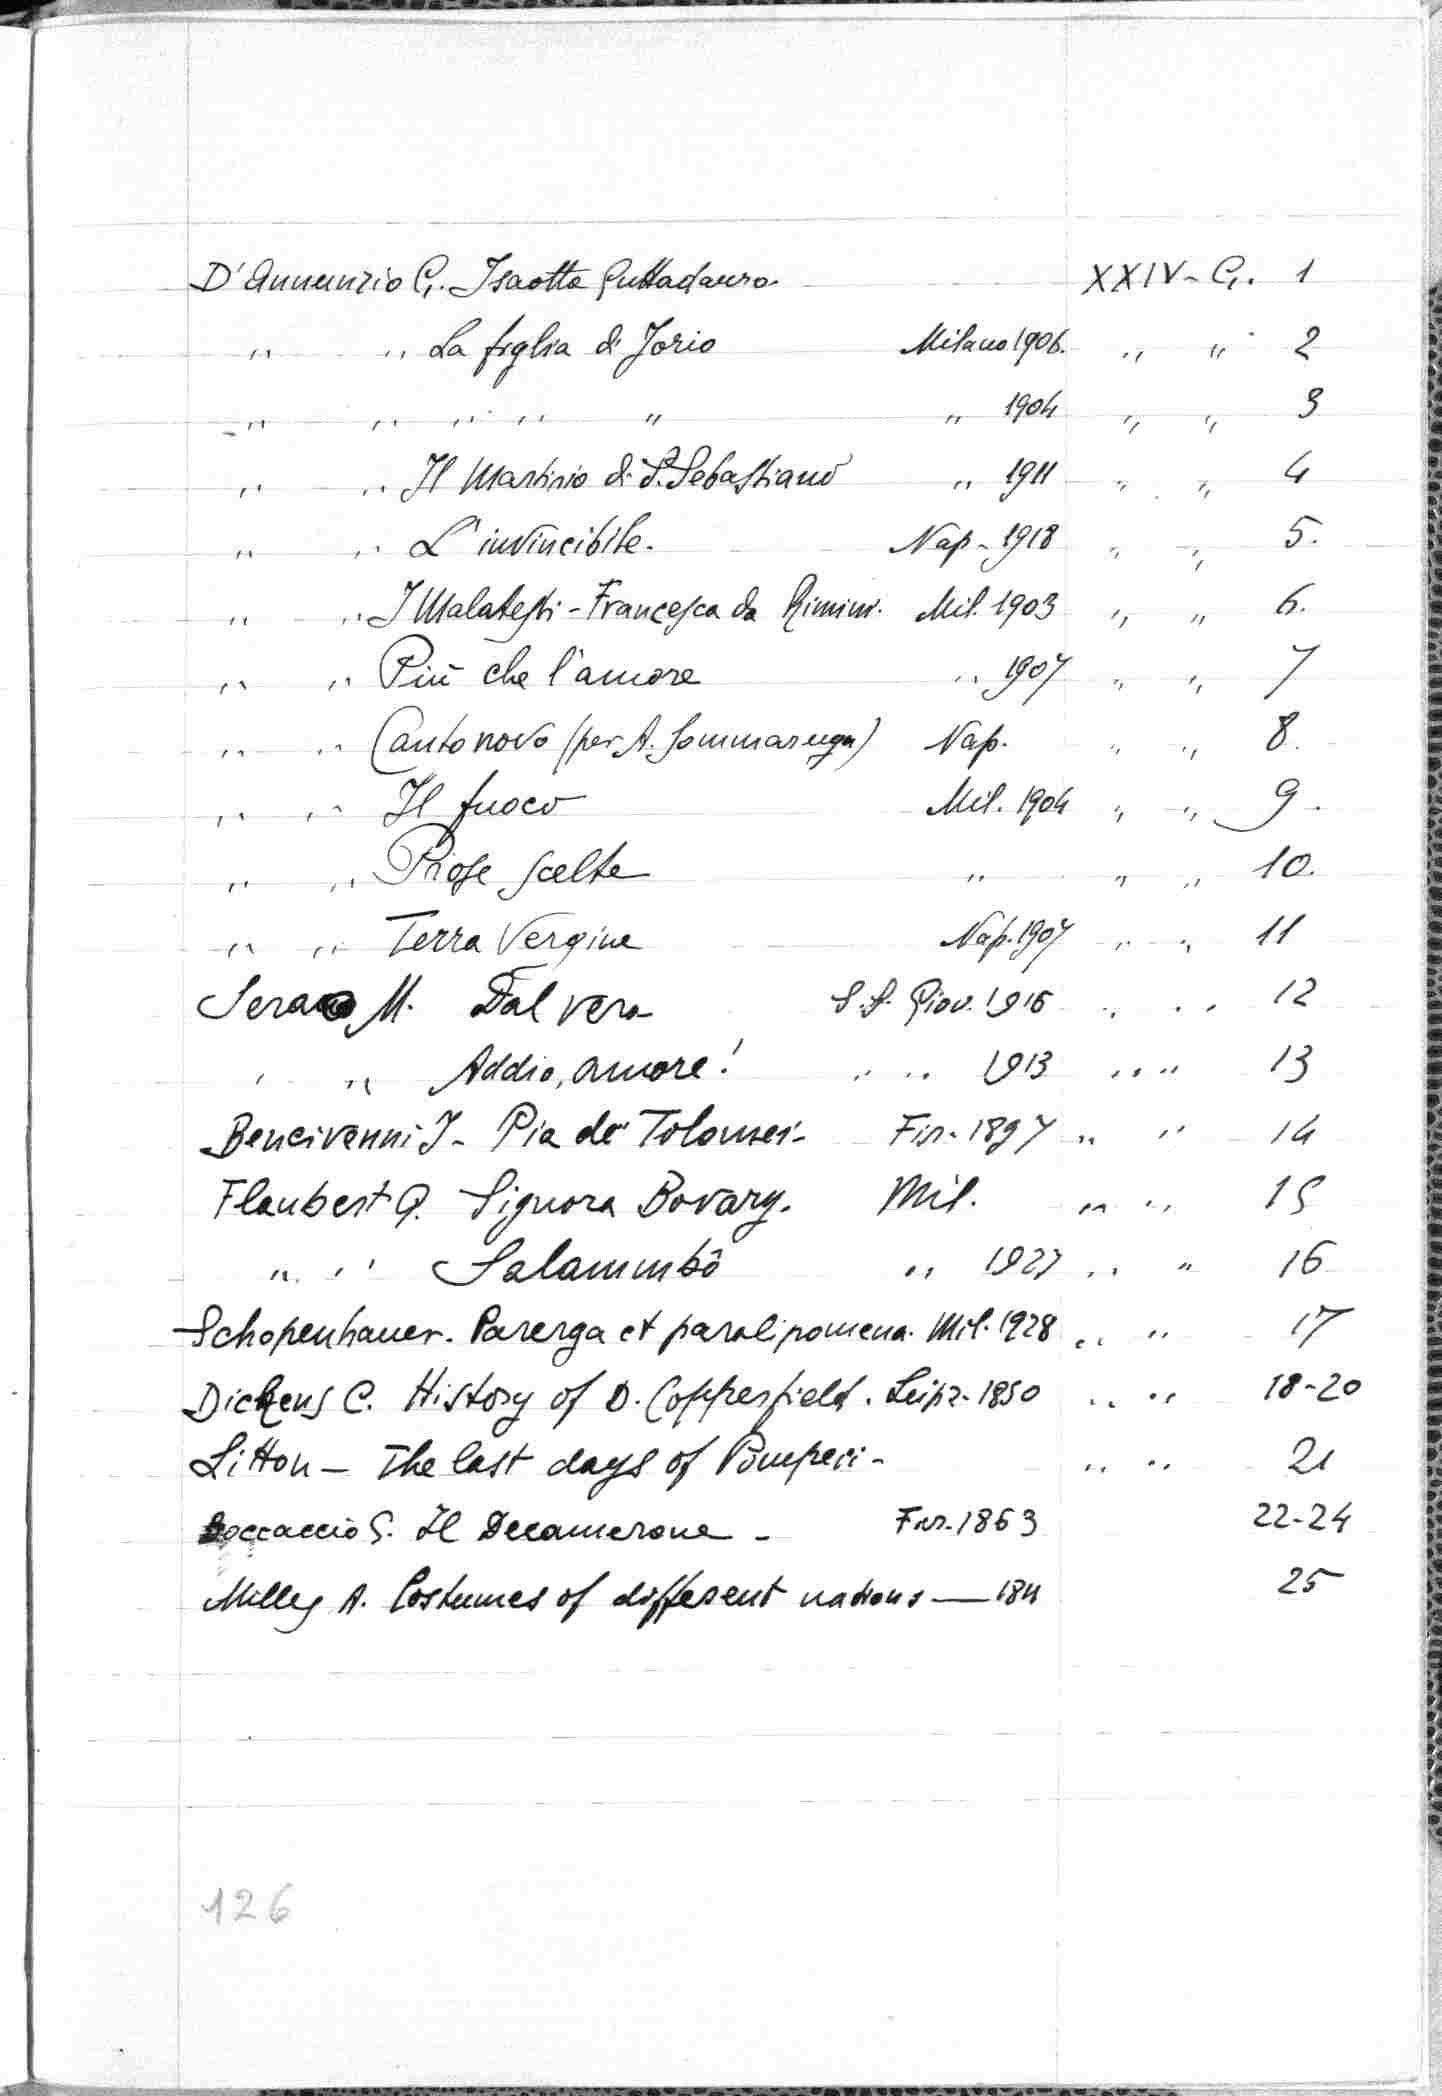 D'Annunzio G. Isaotta Guttadauro. XXIV - G. 1
" " La figlia di Jorio Milano 1906. " " 2
" " " " " " 1904 " " 3
" " Il Martirio di S. Sebastiano " 1911 " " 4
" " L'invincibile. Nap - 1918 " " 5.
" " I Malatesti - Francesca da Rimini. Mil. 1903 " " 6.
" " Più che l'amore " 1907 " " 7
" " Canto novo (per A. Sommaruga) Nap. " " 8.
" " Il fuoco Mil. 1904 " " 9.
" " Prose scelte " " " 10.
" " Terra Vergine Nap. 1907 " " 11
Serao M. Dal vero S.S. Giov. 1916 " " 12
" " Addio, amore! " " 1913 " " 13
Bencivenni I - Pia de' Tolomei - Fir. 1897 " " 14
Flaubert G. Signora Bovary. Mil. " " 15
" " Salammbô " 1927 " " 16
Schopenhauer. Parerga et paralipomena. Mil. 1928 " " 17
Dickens C. History of D. Copperfield. Leipz - 1850 " " 18-20
Litton - The last days of Pompeii - " " 21
Boccaccio G. Il Decamerone - Fir. 1863 22-24
A. Costumes of different nations — 25
126